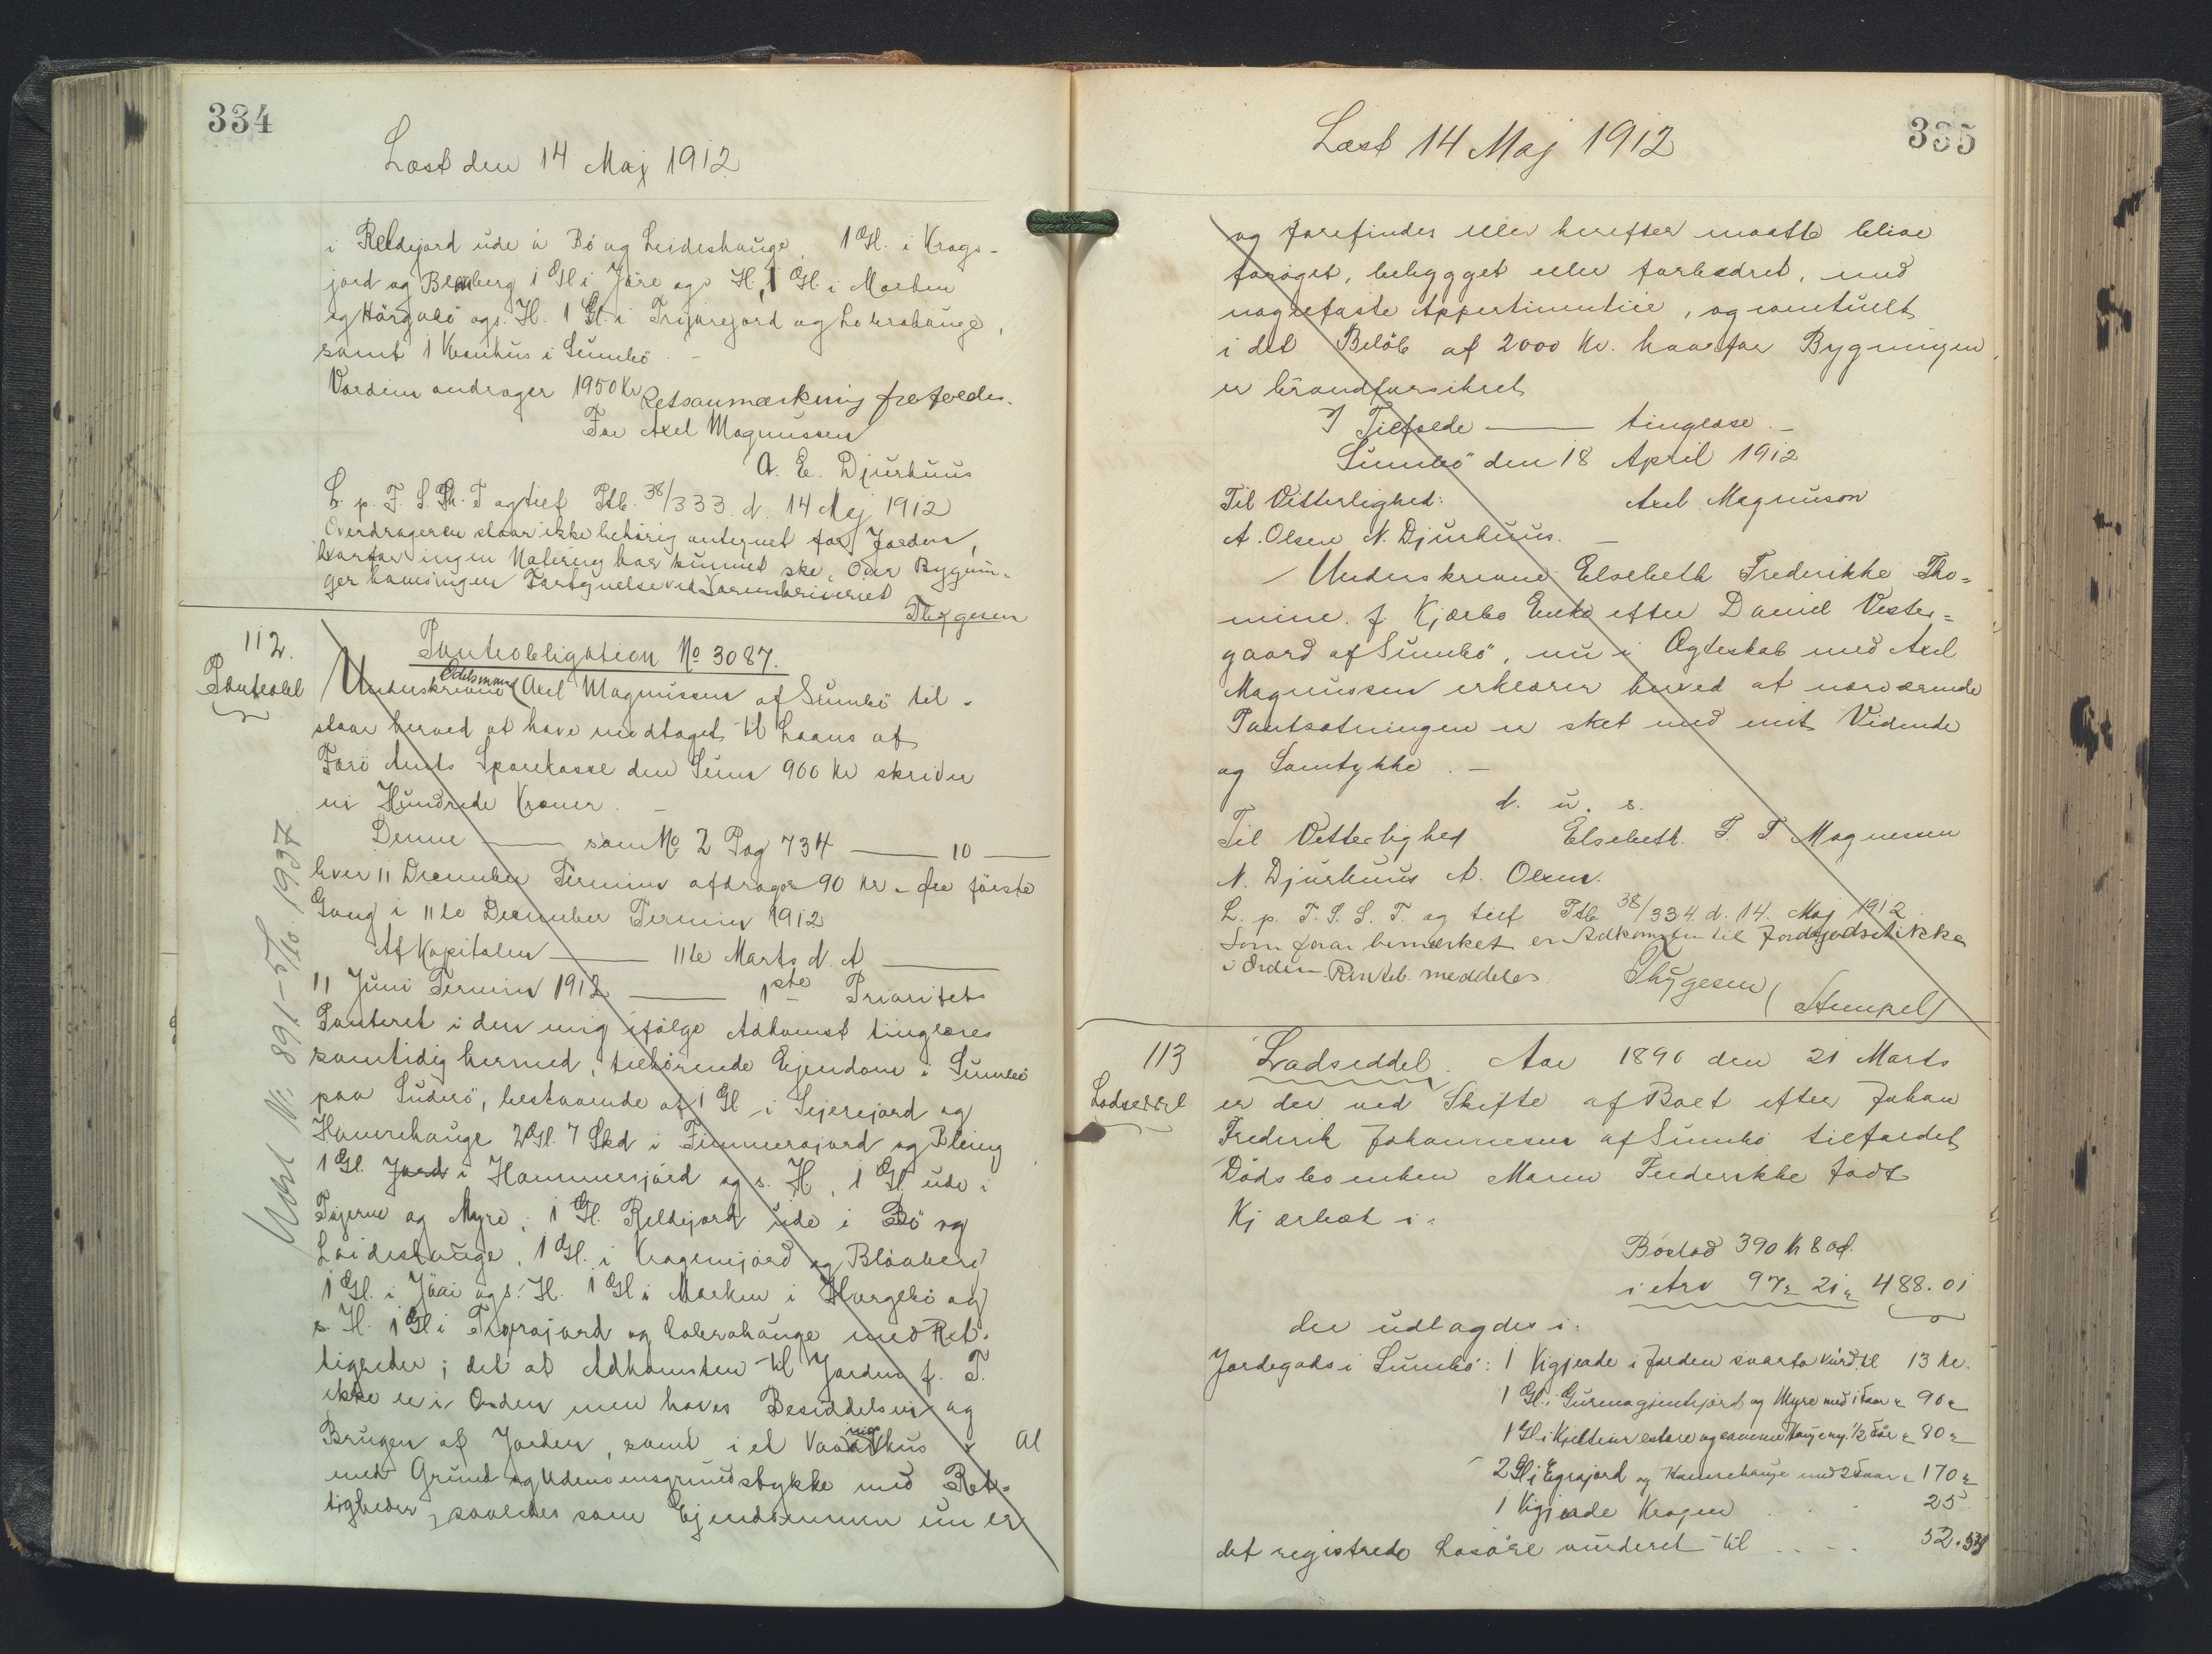 334
Læst den 14 Maj 1912
i Reldejord ude á Bö og Leideshauge, 1 Gl. i Krags-
jord og Blaaberg 1 Gl i Järe ogs H, 1 Gl. i Marken
og Hörgabö ogs. H. 1 Gl. i Trijarejord og Lokrahauge,
samt 1 Vaanhus i Sumbö -
Værdien andrager 1950 Kr Retsanmærkning frafaldes.
For Axel Magnussen
A. E. Djurhuus
L. p. F. S. Th. T og tilf Ptb. 38/333. d. 14 Maj 1912
Overdrageren staar ikke behörig antegnet for Jorden,
hvorfor ingen Notering har kunnet ske. Over Bygnin-
ger haves ingen Fortegnelse ved Sorenskriveriet
Thygesen
112.
Panteobl
Panteobligation No 3087.
Underskrevne Odelsmand Axel Magnussen af Sumbö til-
staar herved at have modtaget til Laans af
Færö Amts Sparekasse den Sum 900 Kr skriver
ni Hundrede Kroner. -
Denne — som No 2 Pag 734 — 10 —
hver 11 December Termin afdrages 90 Kr - før förste
Gang i 11te December Termin 1912
Af Kapitalen — 11te Marts d. A —
11 Juni Termin 1912 — 1ste Prioritets
Panteret i den mig ifölge Adkomst tinglæses
samtidig hermed, tilhörende Ejendom i Sumbö
paa Suderö, bestaaende af 1 Gl i Sejerejord og
Hamrehauge 2 Gl. 7 Skd i Fimmerajord og Bleing
1 Gl. Jord i Hammerjord og s. H, 1 Gl ude i
Tajerne og Myre, 1 Gl. Reldejord ude i Bö og
Leideshauge, 1 Gl. i Kragemjord og Blaaberg
1 Gl. i Jäai ogs. H. 1 Gl i Marken i Hørgebö og
s. H. 1 Gl i Trøjrajord og Lokrahauge med Ret-
tigheder; det at Adkomsten til Jorden f. T.
ikke er i Orden men haves Besiddelsen og
Brugen af Jorden, samt i et Vaaningshus Al
med Grund og Udenomsgrundstykke med Ret-
tigheder, saaledes som Ejendommen nu er
Kvit No 891 - 5/10 1937
335
Læst 14 Maj 1912
og forefindes eller herefter maatte blive
foröget, bebygget eller forbedret, med
nagelfaste Appertinentiis, og eventuelt
i det Belöb af 2000 Kr. hvorfor Bygningen
er brandforsikret
I Tilfælde — tinglæse. -
Sumbö den 18 April 1912
Til Vitterlighed: Axel Magnuson
A. Olsen N. Djurhuus. -
- Underskrevne Elsebeth Frederikke Tho-
mine. f. Kjærbo Enke efter Daniel Vester-
gaard af Sumbö, nu i Ægteskab med Axel
Magnussen erklærer herved at nærværende
Pantsætningen er sket med mit Vidende
og Samtykke. -
d. u. s.
Til Vitterlighed Elsebeth. F. T Magnussen
N. Djurhuus A. Olsen.
L. p. T. S. S. T. og tilf Ptb 38/334. d. 14. Maj 1912.
Som foran bemærket er Adkomsten til Jordegodset ikke
i Orden. Renteb. meddeles. Thygesen (Stempel)
113
Lodseddel
Lodseddel. Aar 1890 den 21 Marts
er der ved Skifte af Boet efter Johan
Frederik Johannesen af Sumbö tilfaldet
Dödsboenken Maren Frederikke födt
Kjærbæk i:
Boslod 390 Kr 80 ø.
i Arv 97 " 21 " 488.01
der udlagdes i:
Jordegods i Sumbö: 1 Vigjeade i Jorden svarta vurd. til 13 Kr.
1 Gl. i Gurmagjentijord og Myre med 1 Faar " 90 "
1 Gl i Kjeltteirestore og samme Hauge ny. 1/2 Får " 80 "
2 Gl i Egrajord og Hamrehauge med 2 Faar " 170 "
1 Vigjeade Kragen . . . 25
det registrede Lösöre vurderet til . . - . 52.54